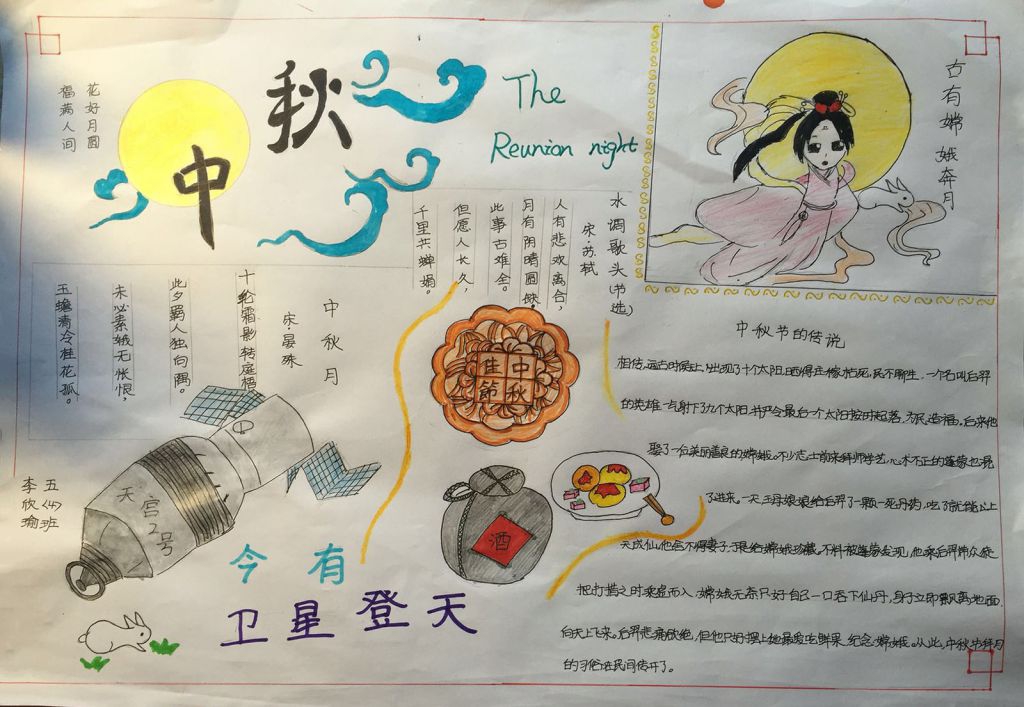 花好月圆
福满人间
中秋
The
Reunion night
古有嫦娥奔月
水调歌头(节选)
宋·苏轼
人有悲欢离合,
月有阴晴圆缺,
此事古难全。
但愿人长久,
千里共蝉娟。
中秋月
宋·晏殊
十轮霜影转庭梧
此夕羁人独向隅。
未必素娥无怅恨,
玉蟾清冷桂花孤。
中秋
佳節
酒
中
天宫2号
五〈4〉班
李欣瑜
今有
卫星登天
中秋节的传说
相传,远古时候天上出现了十个太阳,晒得庄稼枯死,民不聊生,一个名叫后羿
的英雄一气射下了九个太阳,并严令最后一个太阳按时起落,为民造福。后来他
娶了一位美丽善良的嫦娥。不少志士前来拜师学艺,心术不正的蓬蒙也混
了进来。一天王母娘娘给后羿了一颗一死丹药,吃了就能以上
天成仙,他舍不得妻子,于是给嫦娥珍藏。不料被蓬蒙发现,他乘后羿带众徒
把打猎之时来盗而入,嫦娥无奈只好自己一口吞下仙丹,身子立即飘离地面,
向天上飞来。后羿悲痛欲绝,但他只好摆上她最爱吃鲜果,纪念嫦娥。从此,中秋节拜月
的习俗在民间传开了。